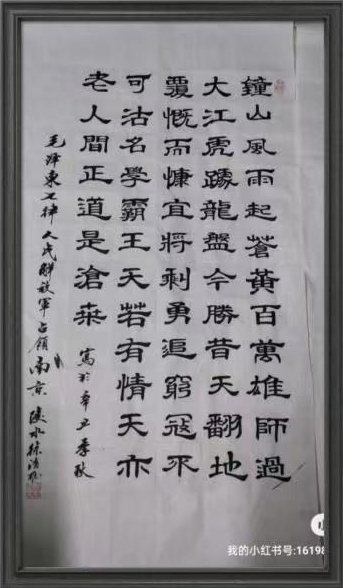 鐘山風雨起蒼黃百萬雄師過
大江虎踞龍盤今勝昔天翻地
覆慨而慷宜將剩勇追窮寇不
可沽名學霸王天若有情天亦
老人間正道是滄桑
寫於辛丑季秋
毛澤東七律人民解放軍占領南京
我的小红书号:16198